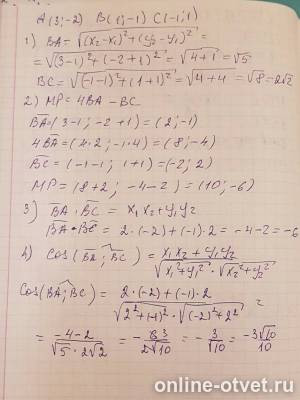 A(3;-2) B(1;-1) C(-1;1)
1) BA = √((x₂-x₁)²+(y₂-y₁)²) =
= √((3-1)²+(-2+1)²) = √(4+1) = √5
BC = √((-1-1)²+(1+1)²) = √(4+4) = √8 = 2√2
2) MP = 4BA - BC
BA = (3-1; -2+1) = (2; -1)
4BA = (4·2; -1·4) = (8; -4)
BC = (-1-1; 1+1) = (-2; 2)
MP = (8+2; -4-2) = (10; -6)
3) BA · BC = x₁x₂ + y₁y₂
BA · BC = 2·(-2)+(-1)·2 = -4-2 = -6
4) cos(BA; BC) = (x₁x₂ + y₁y₂)/(√(x₁²+y₁²) · √(x₂²+y₂²))
cos(BA; BC) = (2·(-2)+(-1)·2)/(√(2²+(-1)²) · √((-2)²+2²)) =
= (-4-2)/(√5 · 2√2) = -6 3/(2√10) = -3/√10 = -3√10/10
online-otvet.ru